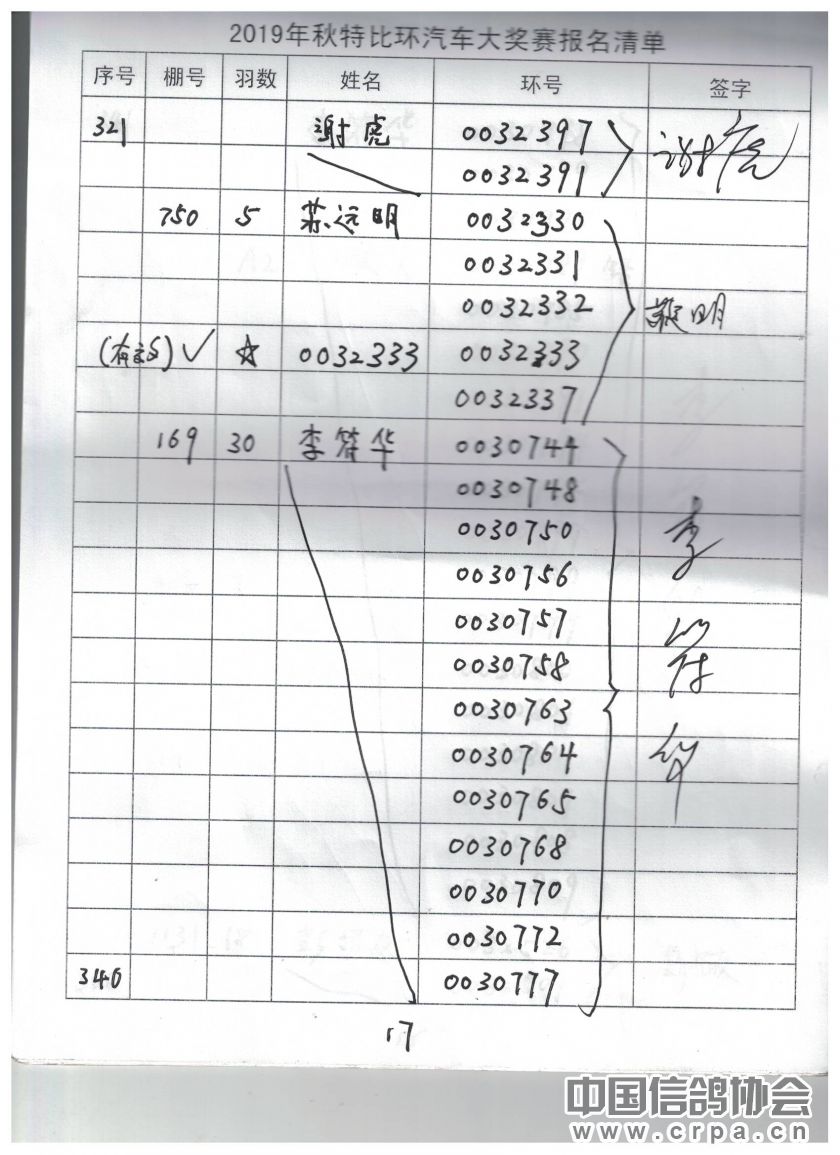 2019年秋特比环汽车大奖赛报名清单
序号 棚号 羽数 姓名 环号 签字
321 谢虎 0032397 谢虎
0032391
750 5 苏远明 0032330
0032331
0032332
0032333 0032333
0032337
169 30 李符华 0030744
0030748
0030750 李
0030756
0030757 符
0030758
0030763
0030764 华
0030765
0030768
0030770
0030772
340 0030777
17
中国信鸽协会
www.crpa.cn